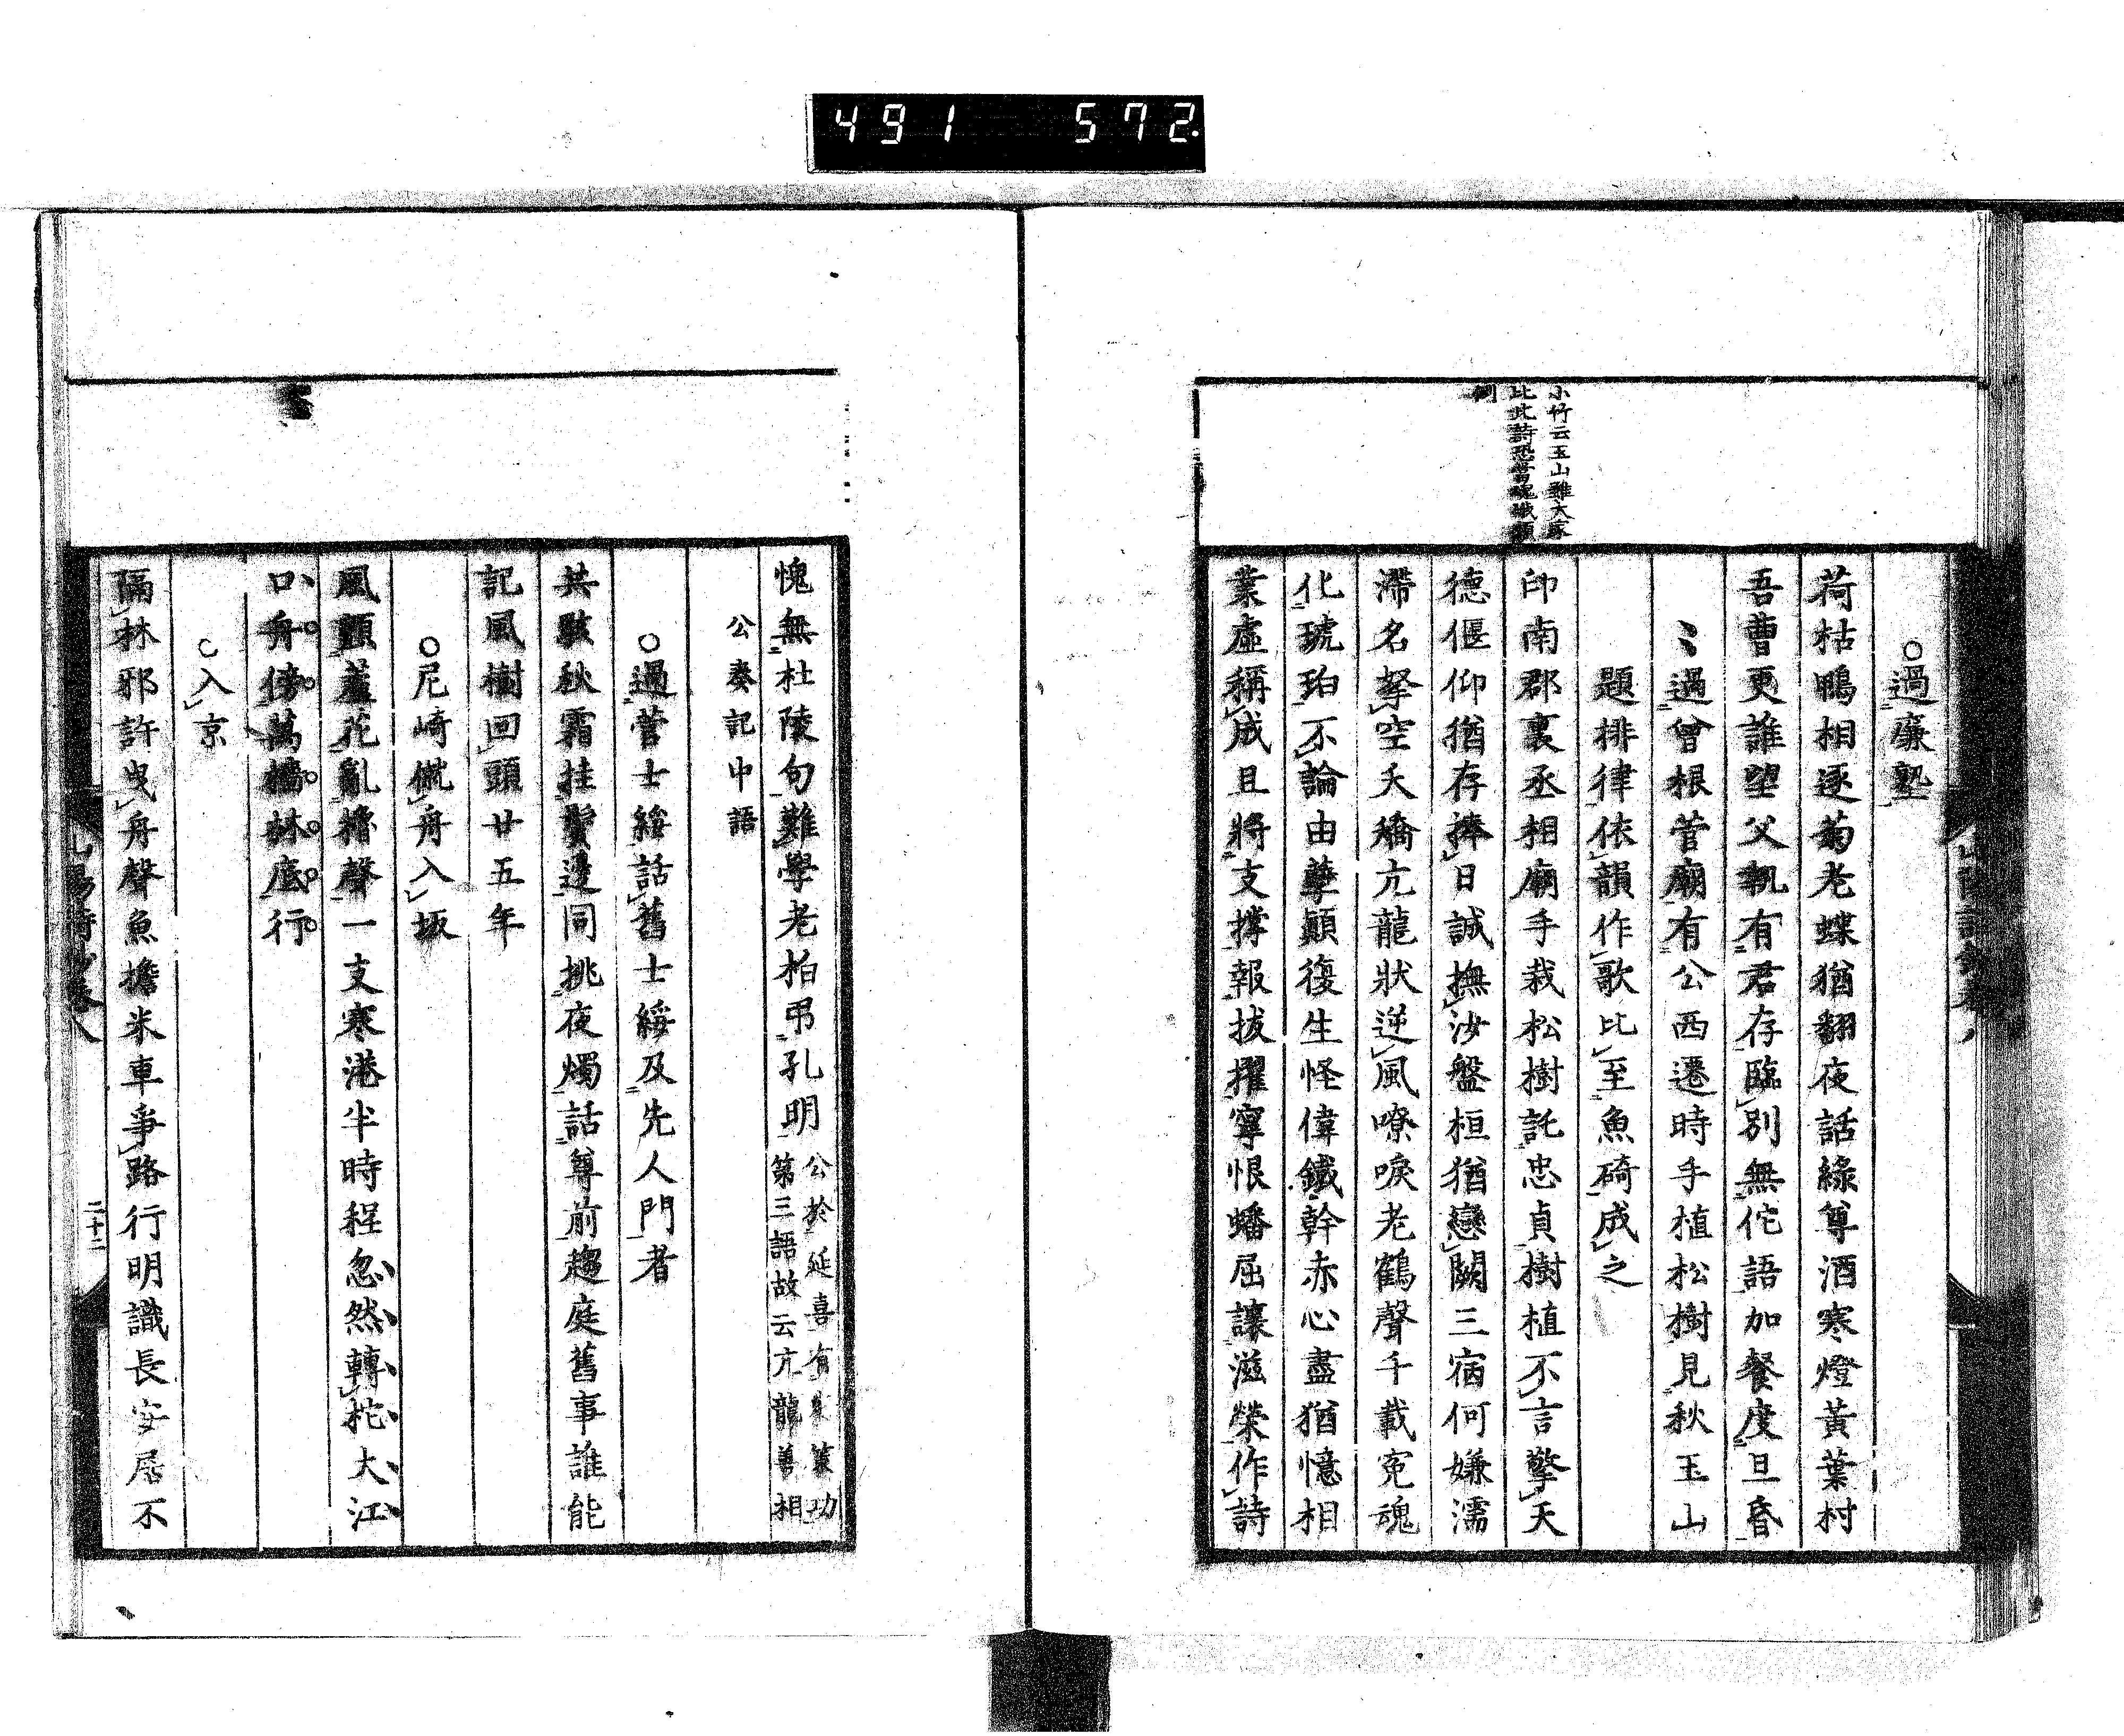 491 572
小竹云玉山雖大家
比此詩恐當瞠
過廉塾
荷枯鴨相逐菊老蝶猶翻夜話綠尊酒寒燈黃葉村
吾曹更誰望父執有君存臨別無佗語加餐度旦昏
過曾根菅廟有公西遷時手植松樹見秋玉山
題排律依韻作歌比至魚碕成之
印南郡裏丞相廟手栽松樹託忠貞樹植不言擎天
德偃仰猶存捧日誠撫汝盤桓猶戀闕三宿何嫌濡
滯名拏空夭矯亢龍狀逆風嘹唳老鶴聲千載冤魂
化琥珀不論由孽顛復生怪偉鐵幹赤心盡猶憶相
業虛稱成且將支撐報拔擢寧恨蟠屈讓滋榮作詩
愧無杜陵句難學老柏弔孔明
公於延喜有朱策功
第三語故云亢龍善相
公奏記中語
過菅士綏話舊士綏及先人門者
共駭秋霜挂鬢邊同挑夜燭話尊前趨庭舊事誰能
記風樹回頭廿五年
尼崎僦舟入坂
風顫蘆花亂櫓聲一支寒港半時程忽然轉柁大江
口舟傍萬檣林底行
入京
隔林邪許曳舟聲魚擔米車爭路行明識長安居不
二十二